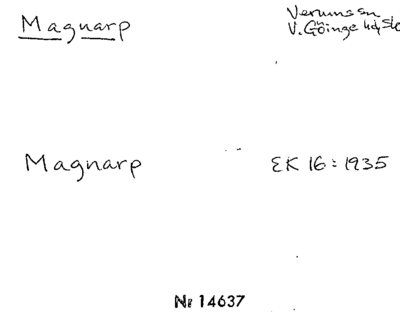 Magnarp
Verums sn
V. Göinge hd, Sk
Magnarp
EK 16: 1935
Nr 14637